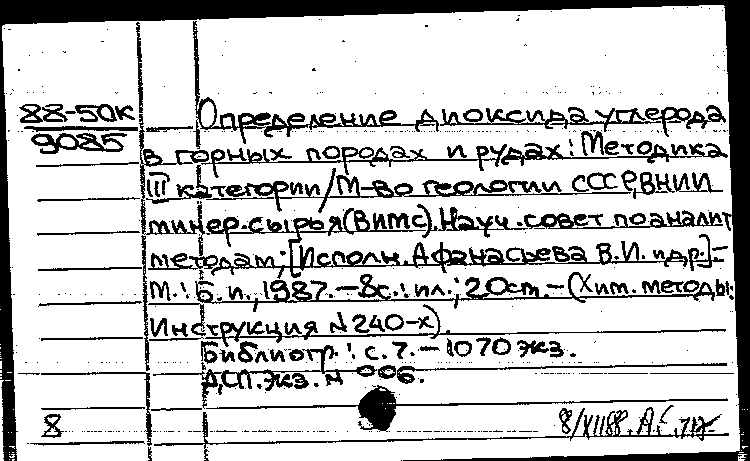 88-50к
9085
Определение диоксида углерода
в горных породах и рудах: Методика
III категории/М-во геологии СССР, ВНИИ
минер. сырья (ВИМС). Науч. совет по аналит
методам; [Исполн. Афанасьева В.И. и др.].-
М.: Б. и., 1987. - 8с.: ил.; 20см. - (Хим. методы:
Инструкция N 240-х).
Библиогр.: с. 7. - 1070 экз.
ДСП. Экз. N 006.
8
8/XII88.